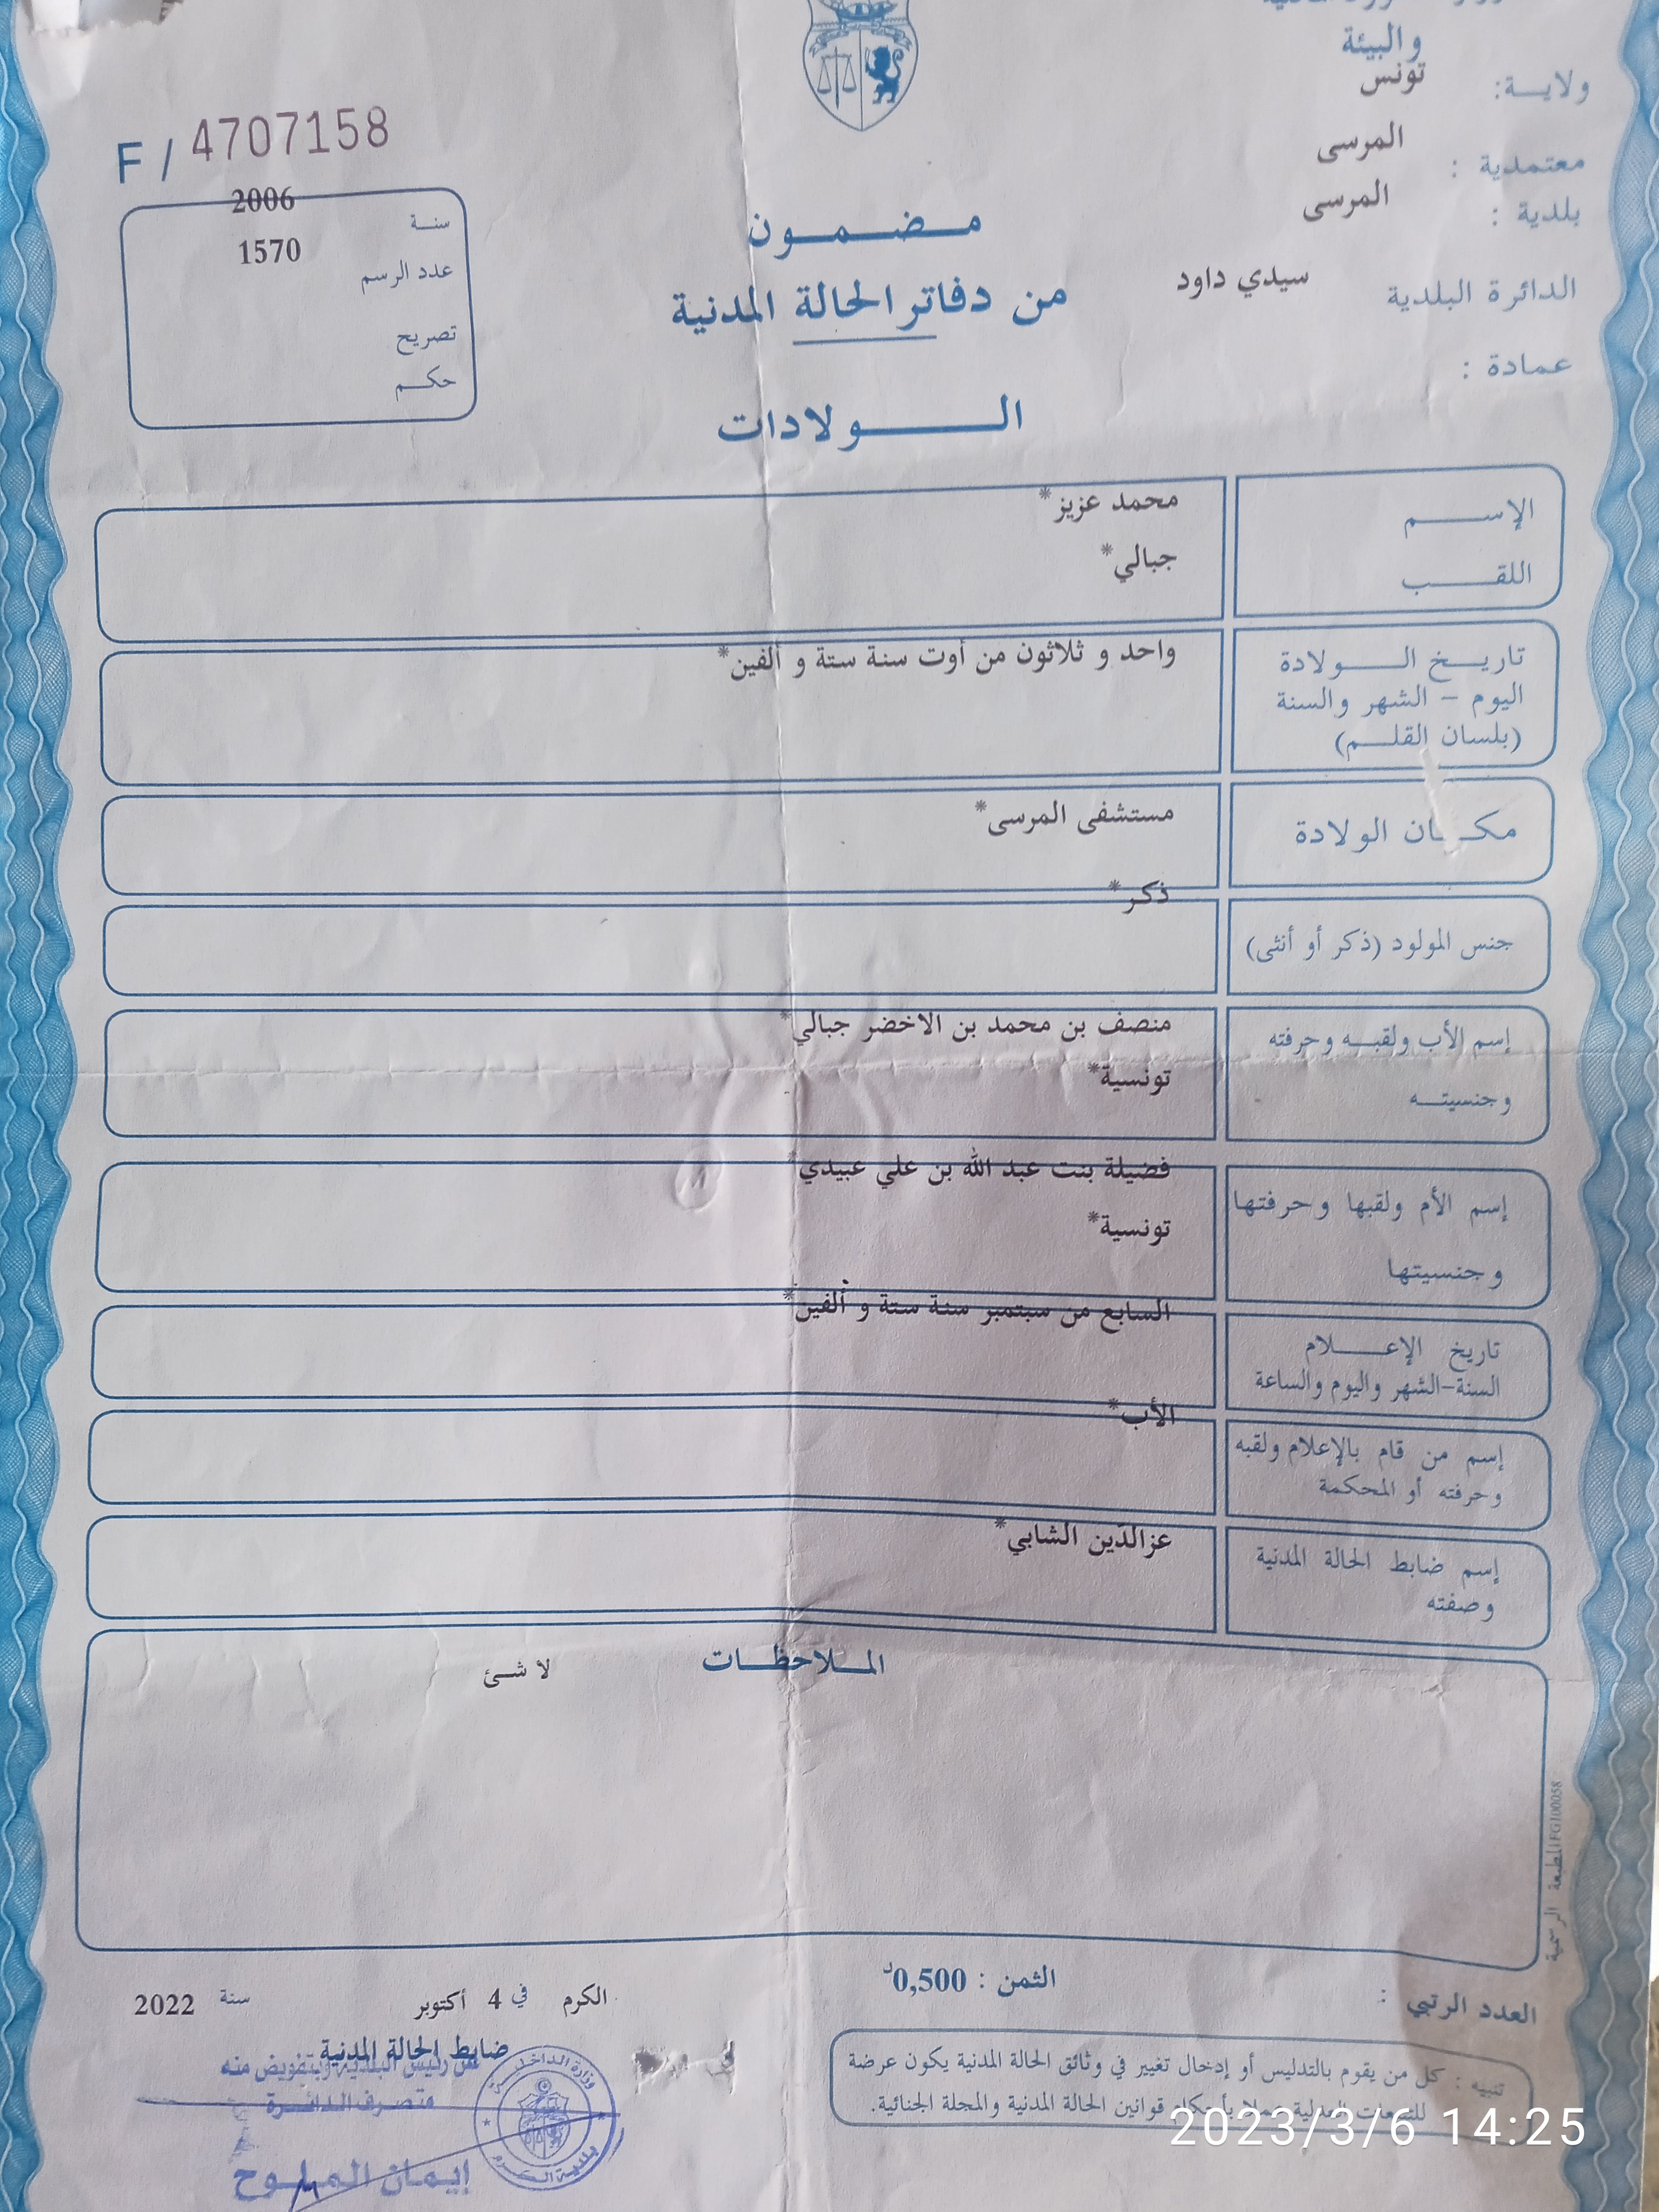 والبيئة
ولايـة: تونس
معتمدية : المرسى
بلدية : المرسى
الدائرة البلدية سيدي داود
عمادة :
F / 4707158
سنة 2006
عدد الرسم 1570
تصريح
حكم
مضمون
من دفاتر الحالة المدنية
الولادات
الإسم محمد عزيز*
اللقب جبالي*
تاريخ الولادة واحد و ثلاثون من أوت سنة ستة و ألفين*
اليوم – الشهر والسنة
(بلسان القلم)
مكان الولادة مستشفى المرسى*
جنس المولود (ذكر أو أنثى) ذكر*
إسم الأب ولقبه وحرفته منصف بن محمد بن الاخضر جبالي*
وجنسيته تونسية*
إسم الأم ولقبها وحرفتها فضيلة بنت عبد الله بن علي عبيدي*
وجنسيتها تونسية*
تاريخ الإعلام السابع من سبتمبر سنة ستة و ألفين*
السنة-الشهر واليوم والساعة
إسم من قام بالإعلام ولقبه الأب*
وحرفته أو المحكمة
إسم ضابط الحالة المدنية عزالدّين الشابي*
وصفته
الملاحظات لا شئ
المطبعة الرسمية
العدد الرتبي :
الثمن : 0,500د
الكرم في 4 أكتوبر سنة 2022
ضابط الحالة المدنية
عن رئيس البلدية وبتفويض منه
متصرف الدائرة
إيمان الملوح
وزارة الداخلية
بلدية الكرم
تنبيه : كل من يقوم بالتدليس أو إدخال تغيير في وثائق الحالة المدنية يكون عرضة
للتبعات العدلية عملا بأحكام قوانين الحالة المدنية والمجلة الجنائية.
2023/3/6 14:25